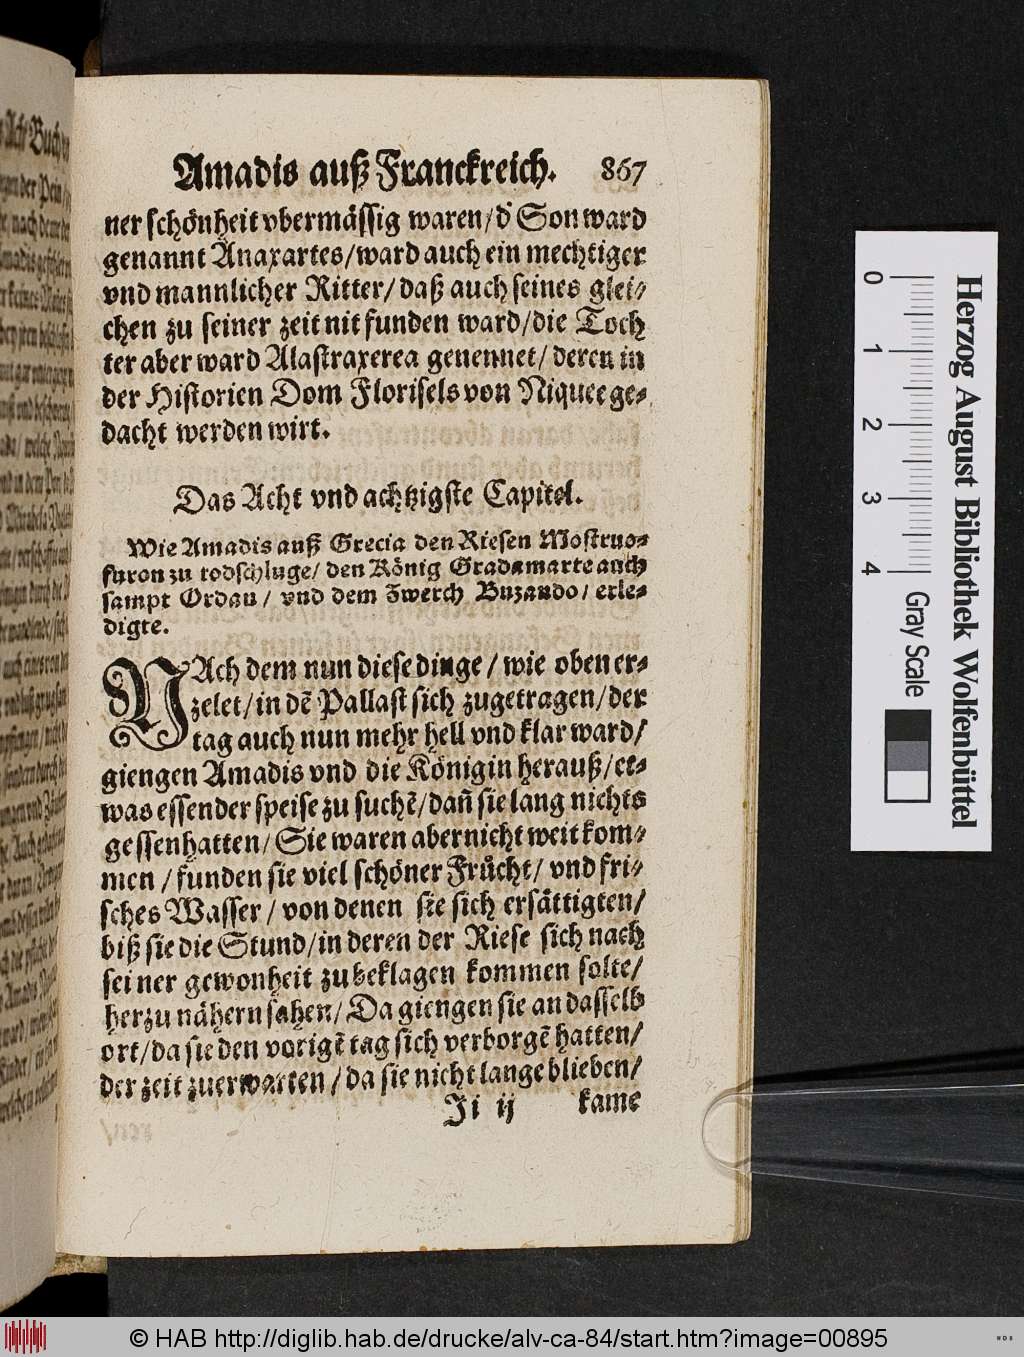 Amadis auß Franckreich. 867
ner schönheit vbermässig waren/d' Son ward
genannt Anaxartes/ward auch ein mechtiger
vnd mannlicher Ritter/daß auch seines glei/
chen zu seiner zeit nit funden ward/die Toch
ter aber ward Alastraxerea genennet/deren in
der Historien Dom Florisels von Niquee ge-
dacht werden wirt.
Das Acht vnd achtzigste Capitel.
Wie Amadis auß Grecia den Riesen Mostruo-
furon zu todschluge/ den König Gradamarte auch
sampt Ordan/ vnd dem Zwerch Buzando/ erle-
digte.
NAch dem nun diese dinge/ wie oben er-
zelet/in dẽ Pallast sich zugetragen/der
tag auch nun mehr hell vnd klar ward/
giengen Amadis vnd die Königin herauß/et-
was essender speise zu suchẽ/dañ sie lang nichts
gessen hatten/ Sie waren aber nicht weit kom-
men / funden sie viel schöner Frücht/ vnd fri-
sches Wasser/ von denen sie sich ersättigten/
biß sie die Stund/in deren der Riese sich nach
seiner gewonheit zubeklagen kommen solte/
herzu nähern sahen/ Da giengen sie an dasselb
ort/da sie den vorigẽ tag sich verborgẽ hatten/
der zeit zuerwarten/da sie nicht lange blieben/
Ii ij kame
Herzog August Bibliothek Wolfenbüttel
0 1 2 3 4 Gray Scale
© HAB http://diglib.hab.de/drucke/alv-ca-84/start.htm?image=00895